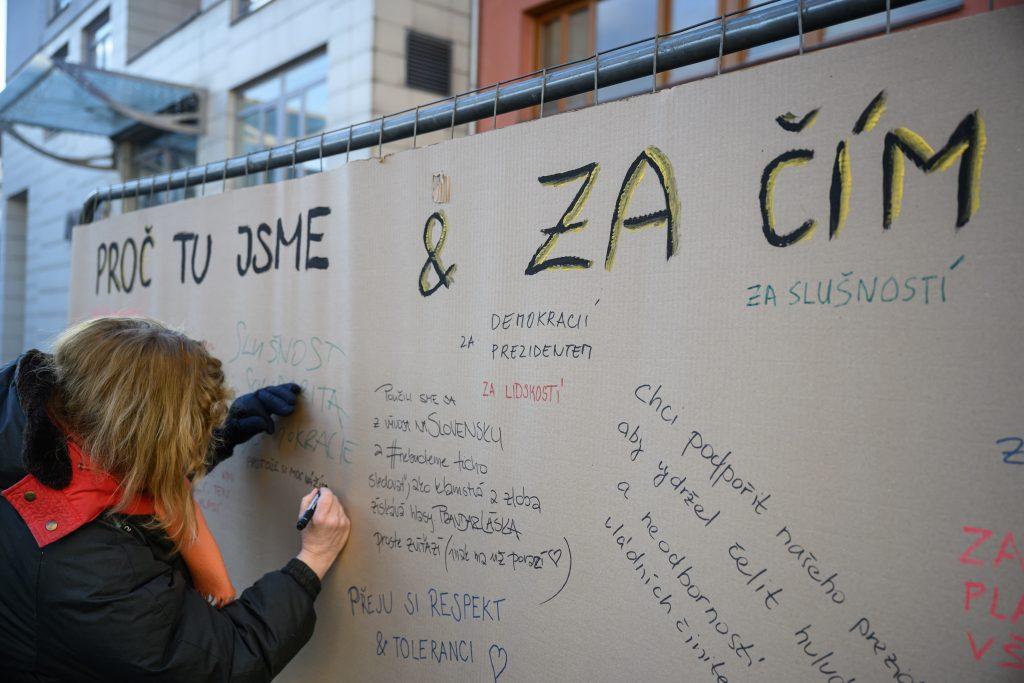 PROČ TU JSME & ZA ČÍM
ZA SLUŠNOSTÍ
ZA DEMOKRACIÍ
PREZIDENTEM
ZA LIDSKOSTÍ
SLUŠNOST
DEMOKRACIE
PROTOŽE SI MOC
Poučili sme sa
z vývoja na SLOVENSKU
a #nebudeme ticho
sledovať, ako klamstvá a zloba
získavá hlasy PRAVDA & LÁSKA
proste zvíťazí (inak ma už porazí ♡)
PŘEJU SI RESPEKT
& TOLERANCI ♡
Chci podpořit našeho
aby vydržel čelit
a neodbornosti
vládních
ZA
VŠ